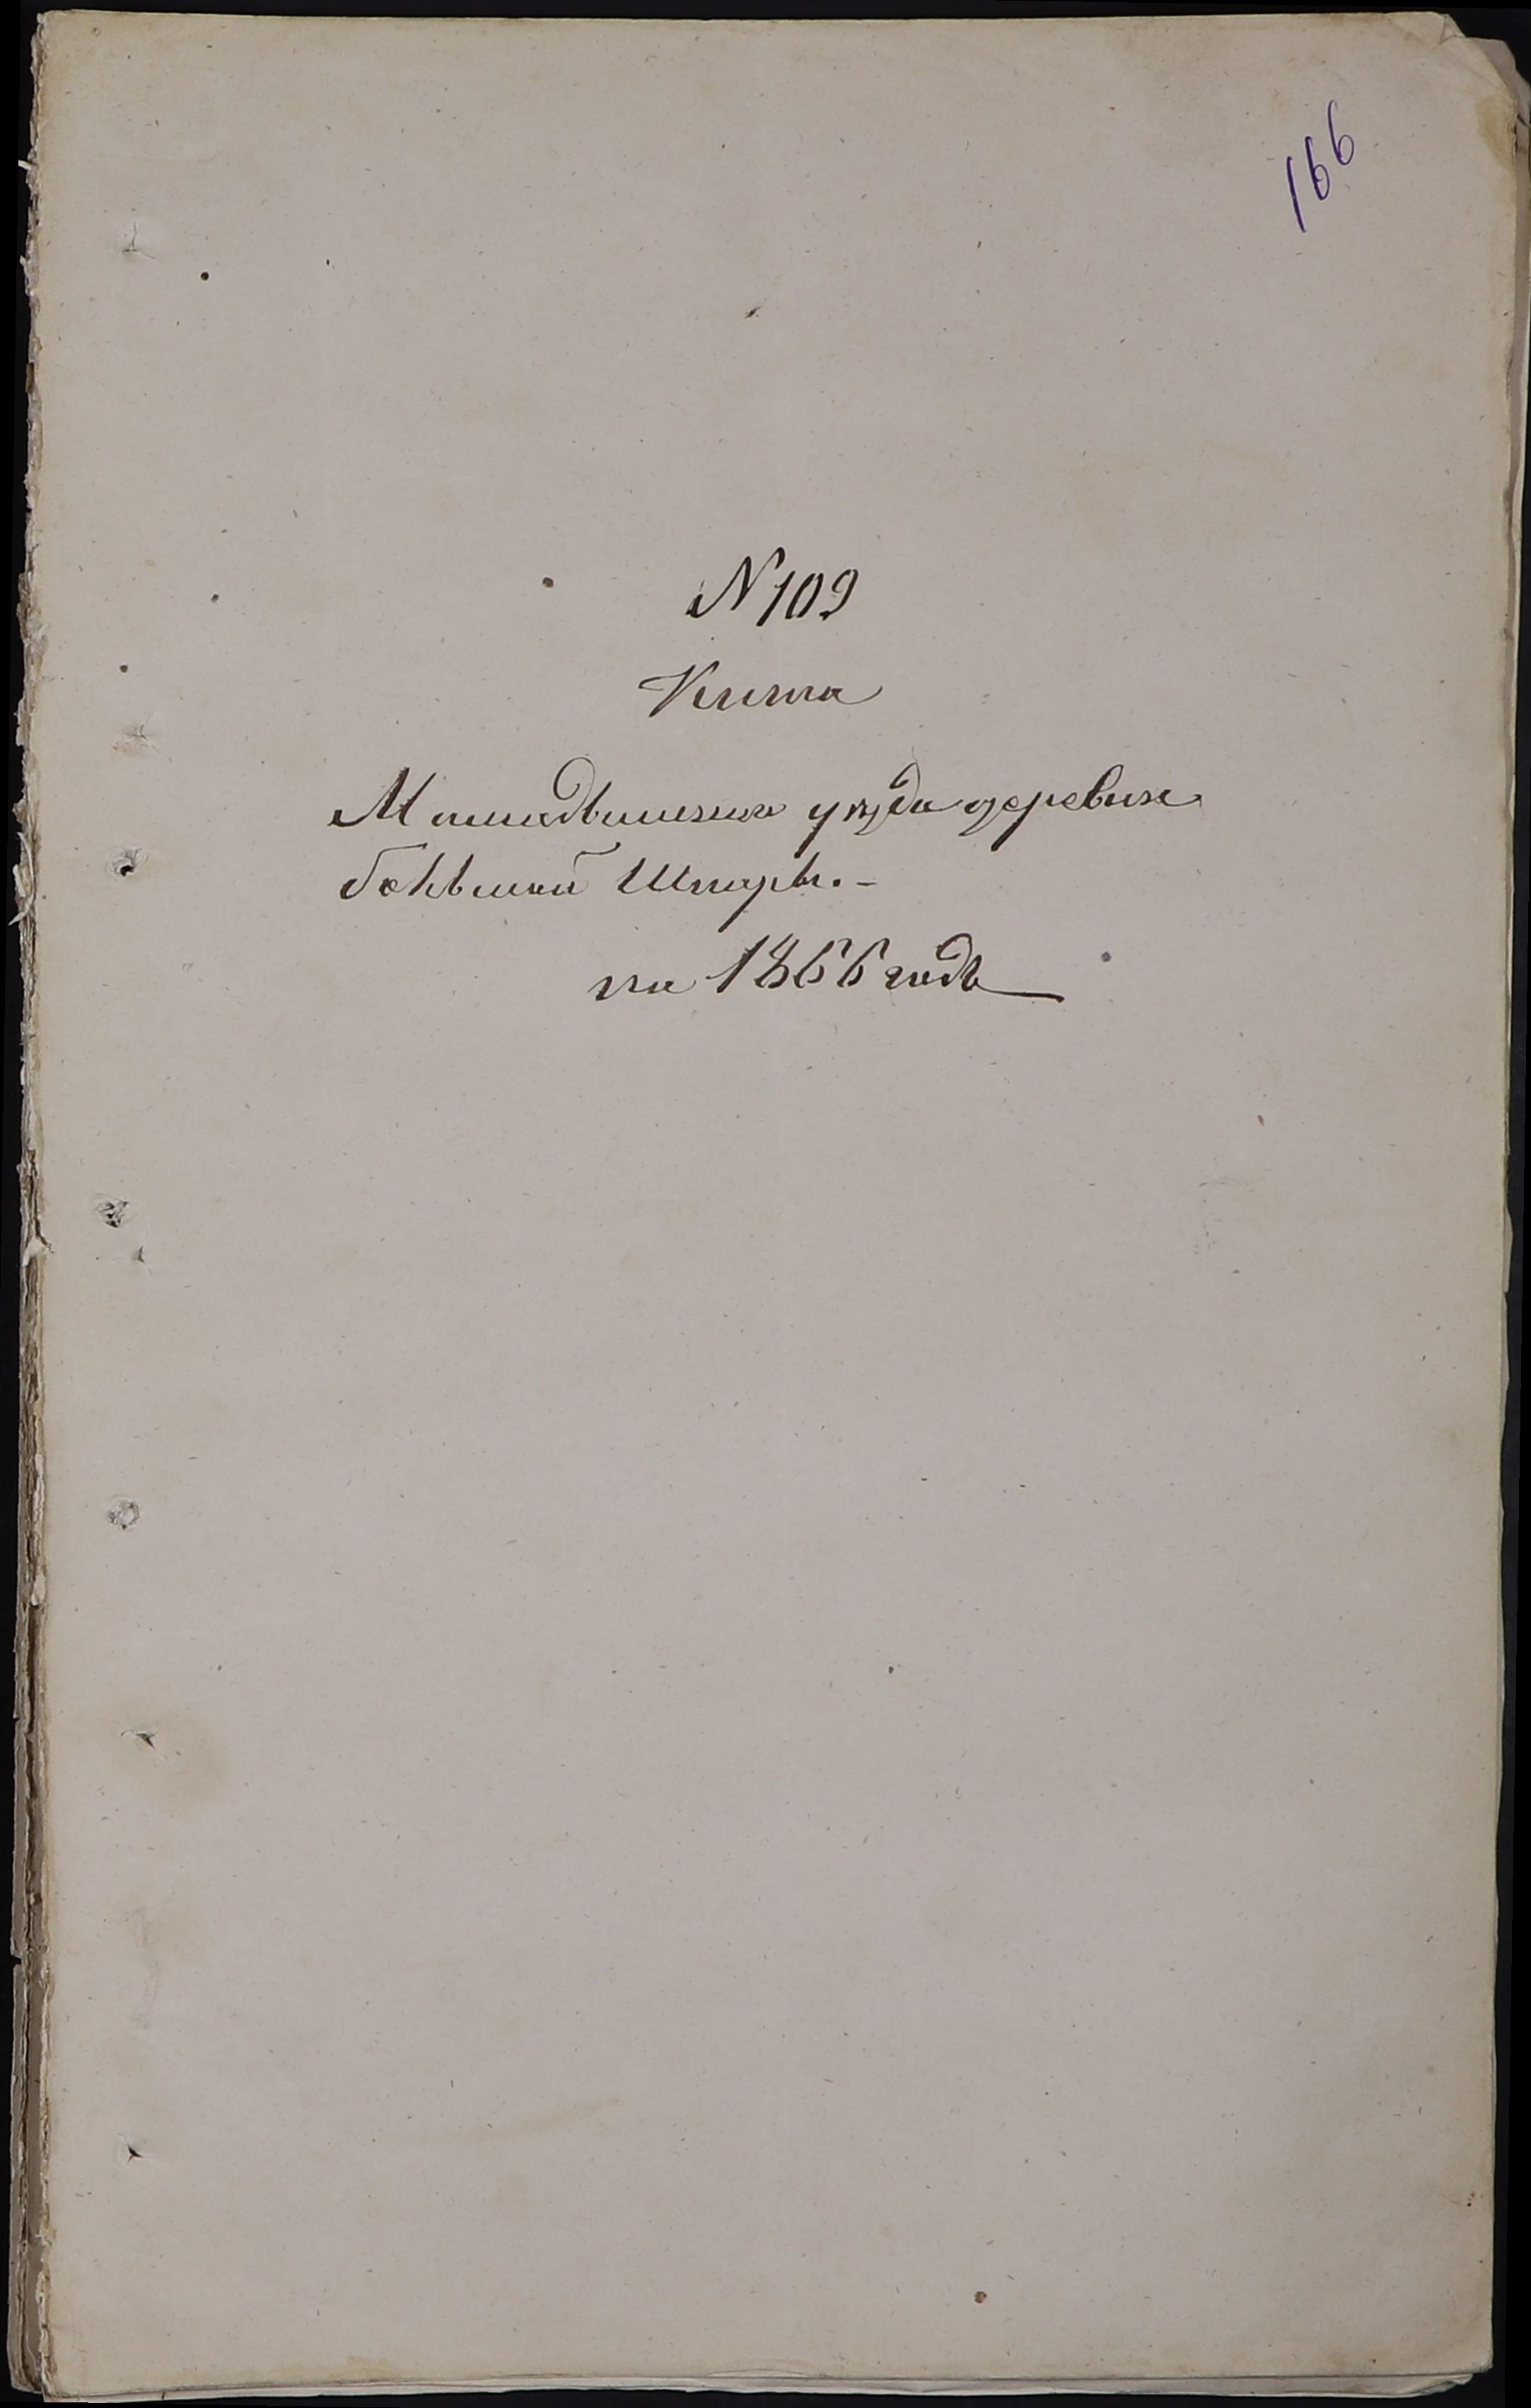 166
№ 109
Книга
Мамадышскаго уѣзда деревни
большой Шнары.-
на 1866 годъ